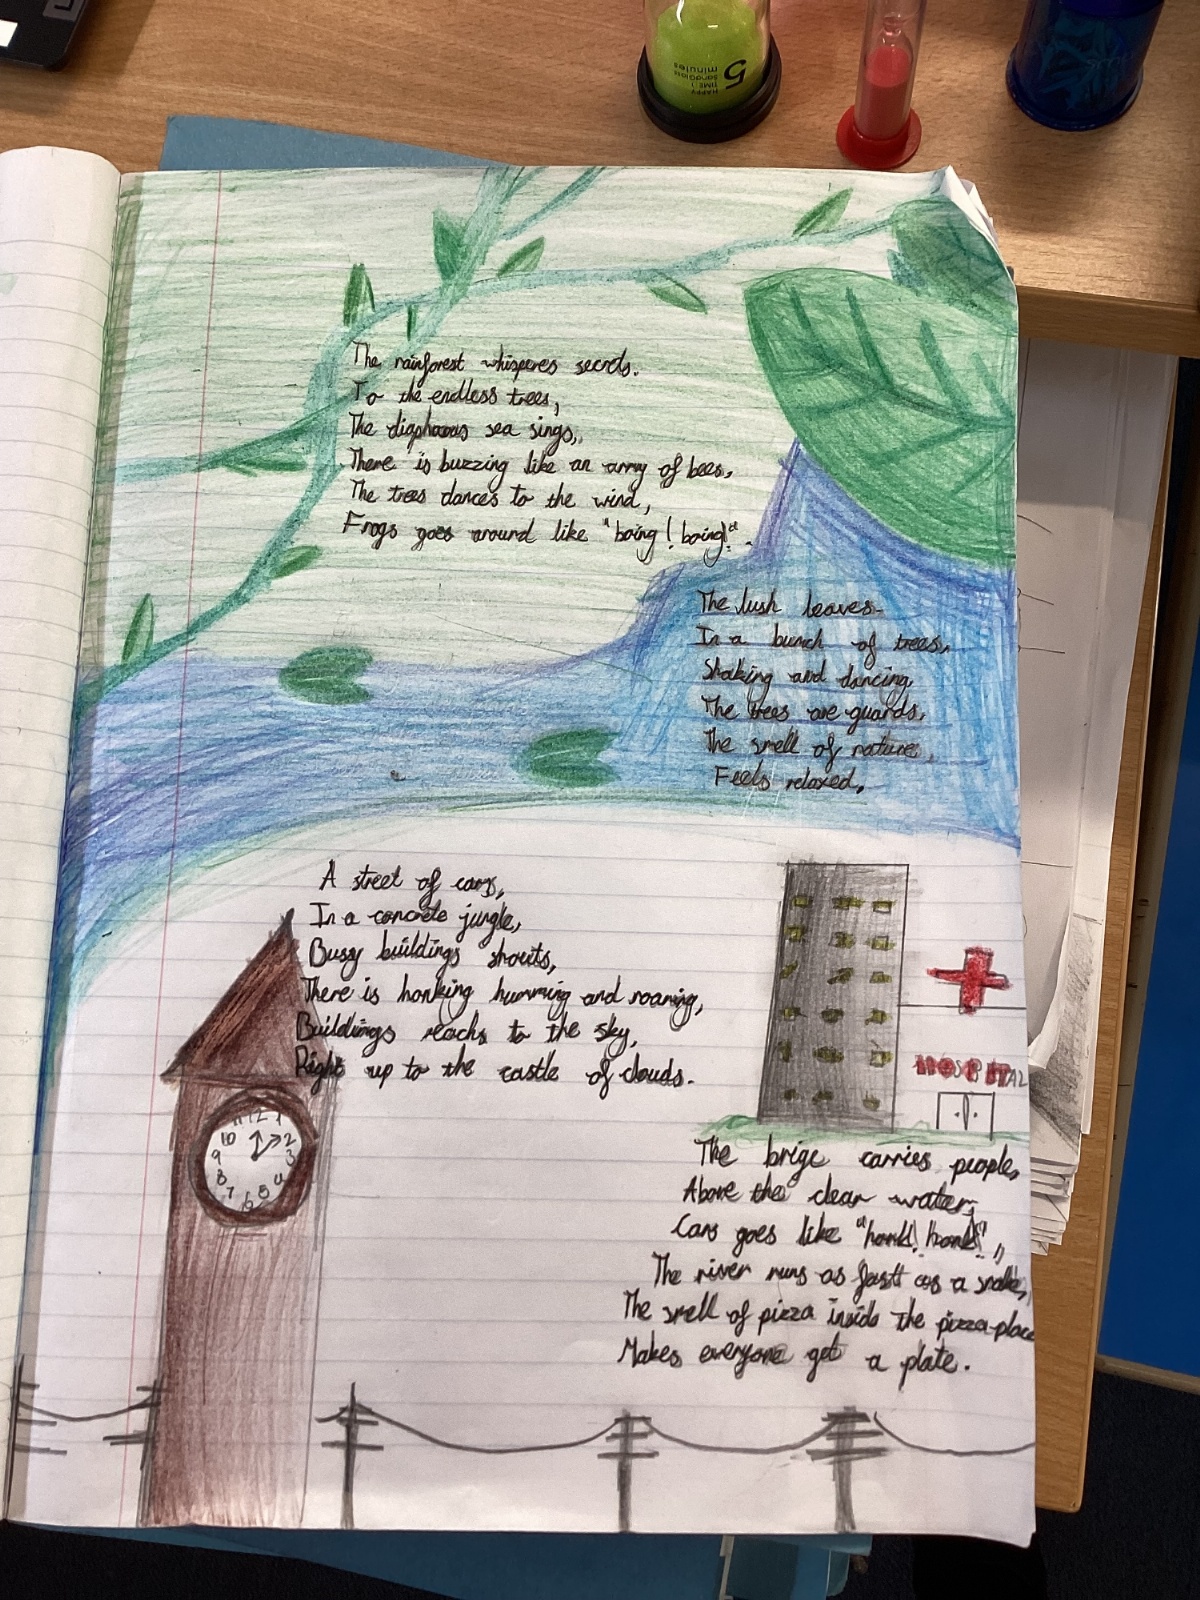 5
minutes
SandGlass
TIME:)
HAPPY
The rainforest whisperes secrets.
To the endless trees,
The diaphaous sea sings,
There is buzzing like an array of bees,
The trees dances to the wind,
Frogs goes around like "boing! boing!".
The lush leaves
In a bunch of trees,
Shaking and dancing,
The trees are guards,
The smell of nature,
Feels relaxed,
A street of cars,
In a concrete jungle,
Bussy buildings shouts,
There is honking humming and roaring,
Buildings reachs to the sky,
Right up to the castle of clouds.
HOSPITAL
11 12 1
10 2
9 3
8 4
7 6 5
The brige carries people,
Above the clear water,
Cars goes like "honk! honk!",
The river runs as fastt as a snake,
The smell of pizza inside the pizza place
Makes everyone get a plate.